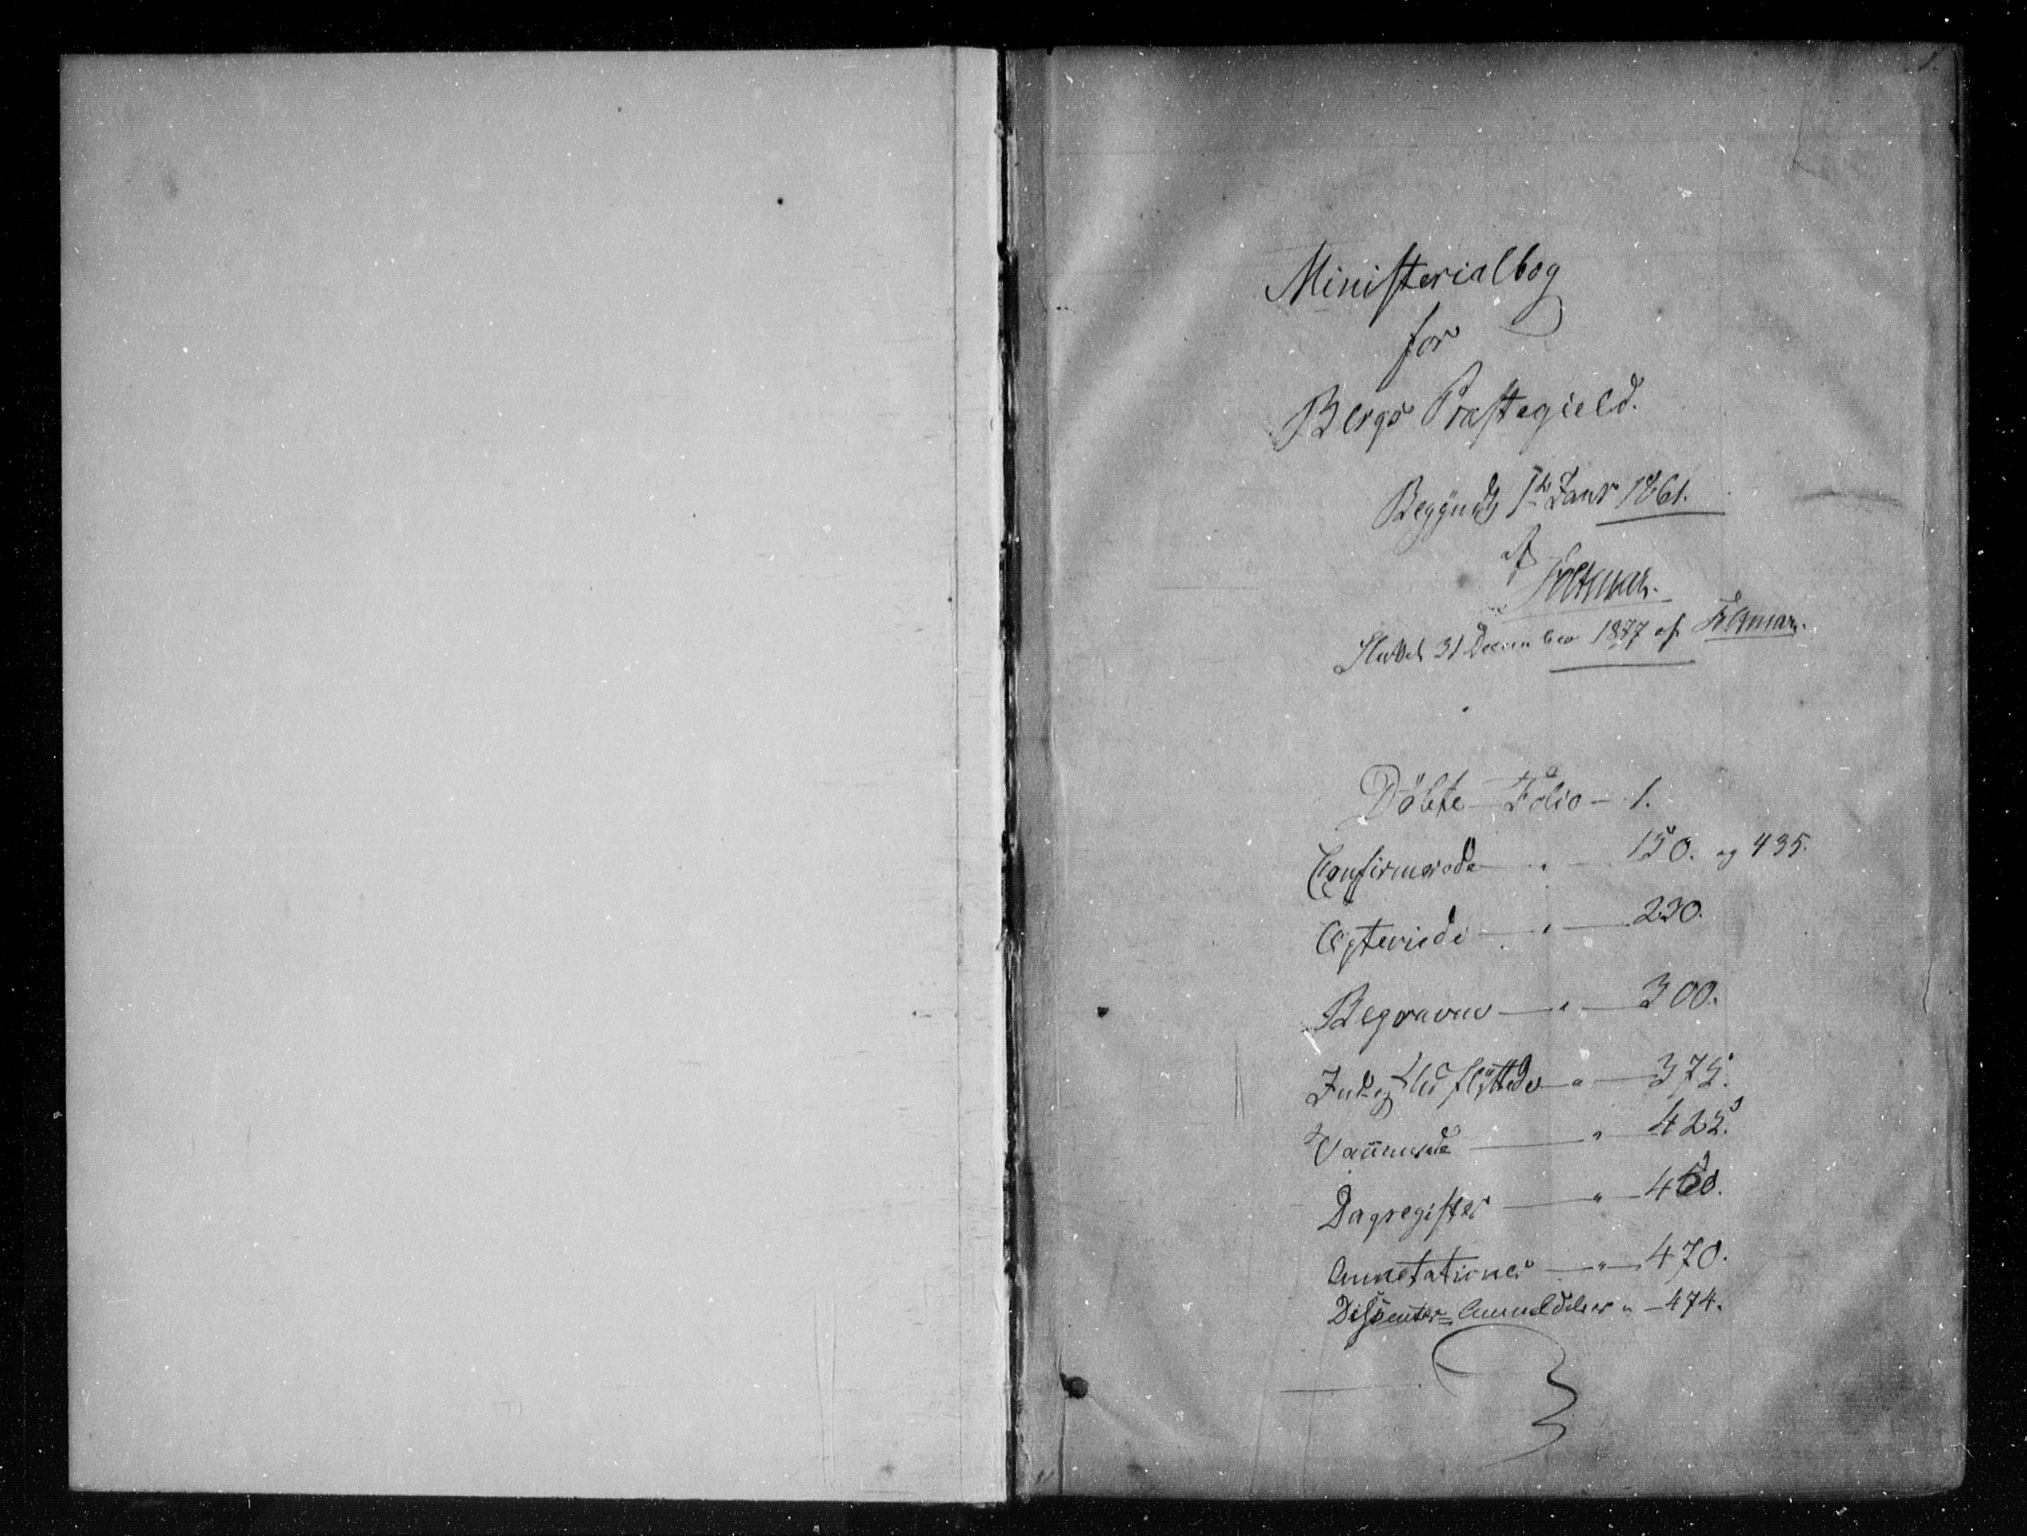 1.
Ministerialbog
for
Bergs Præstegield.
Begyndt 1te Janr 1861.
af
Sluttet 31 December 1877 af
Döbte Folio – 1.
Confirmerede " 150. og 435.
Copulerede " 230.
Begravne " 300.
Ind og Ud flyttede " 375.
Vaccinerede " 425.
Dagregister " 460.
Annotationer " 470.
Dissenter= Anmeldelser " 474.